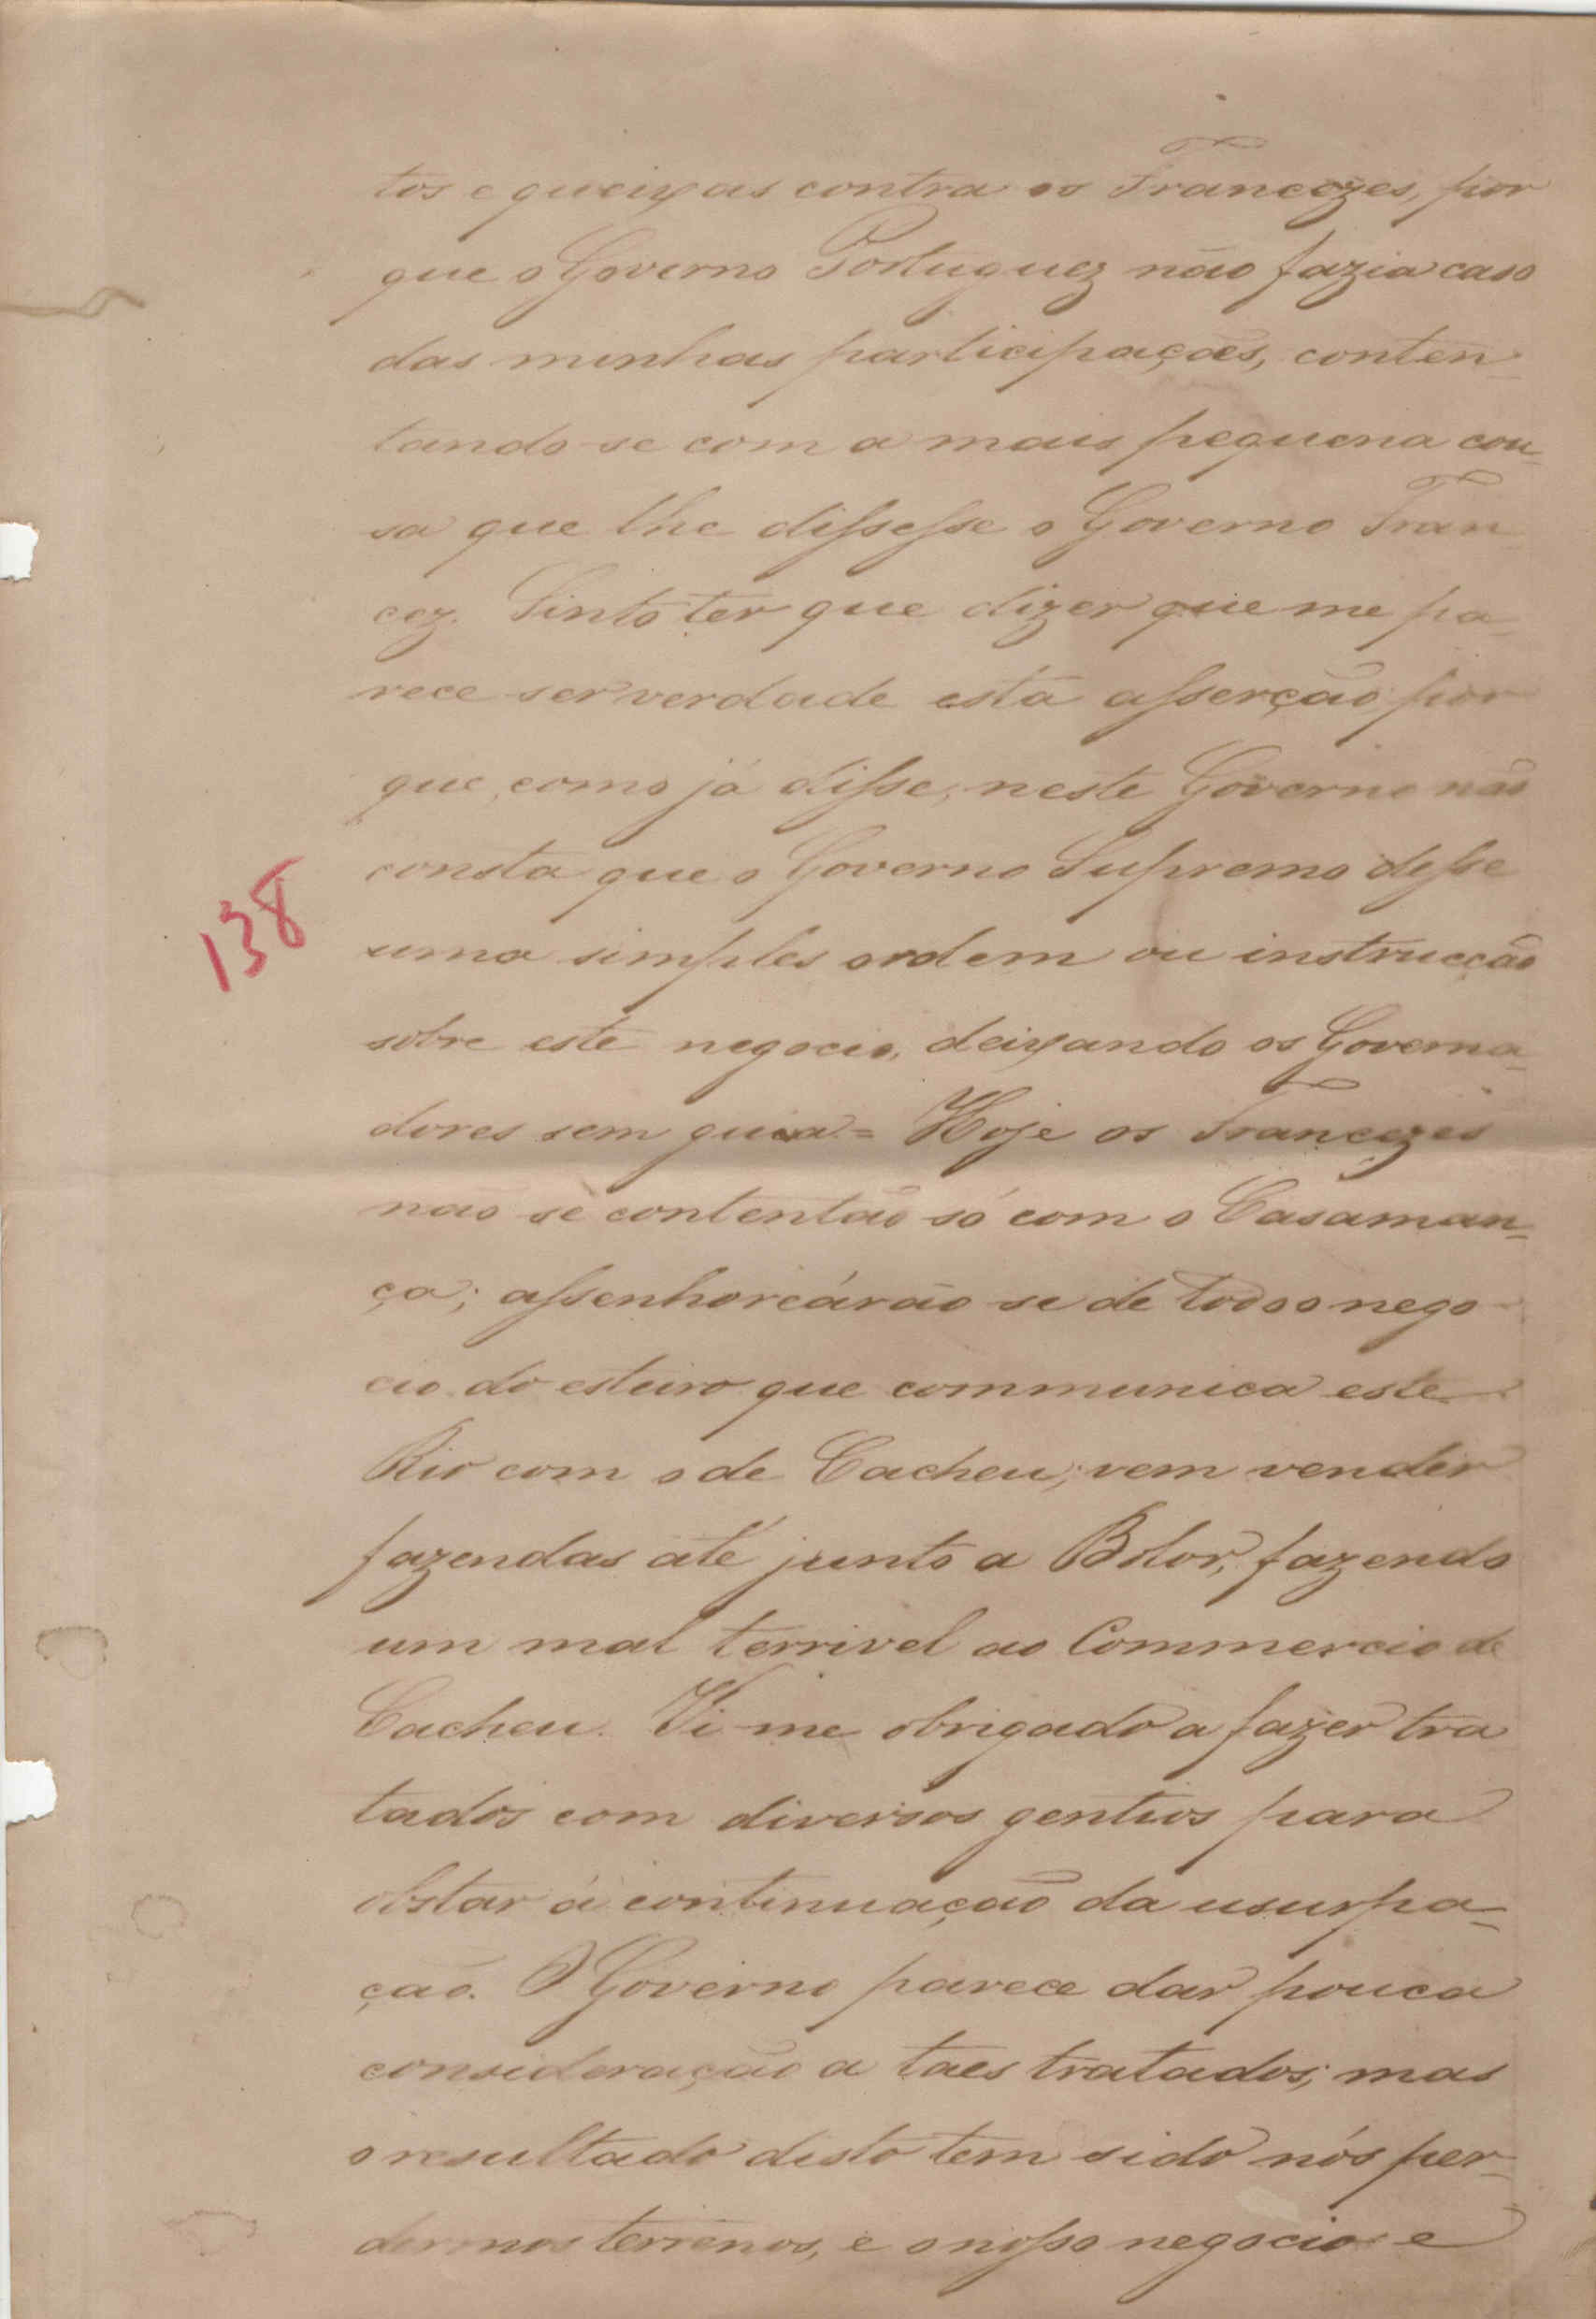 tos e queixas contra os Francezes, por
que o Governo Portuguez não fazia caso
das minhas participações, conten-
tando-se com a mais pequena cou-
sa que lhe dissesse o Governo Fran
cez. Sinto ter que dizer que me pa-
rece ser verdade está asserção por
que, como já disse, neste Governo não
consta que o Governo Supremo desse
138
uma simples ordem ou instrucção
sobre este negocio, deixando os Governa-
dores sem guia = Hoje os Francezes
não se contentão só com o Casaman-
ça; assenhoreárão-se de todo o nego
cio do esteiro que communica este
Rio com o de Cacheu; vem vender
fazendas até junto a Bolor, fazendo
um mal terrivel ao Commercio de
Cacheu. Vi-me obrigado a fazer tra
tados com diversos gentios para
obstar á continuação da usurpa-
ção. O Governo parece dar pouca
consideração a taes tratados; mas
o resultado disto tem sido nós per-
dermos terrenos, e o nosso negocio e